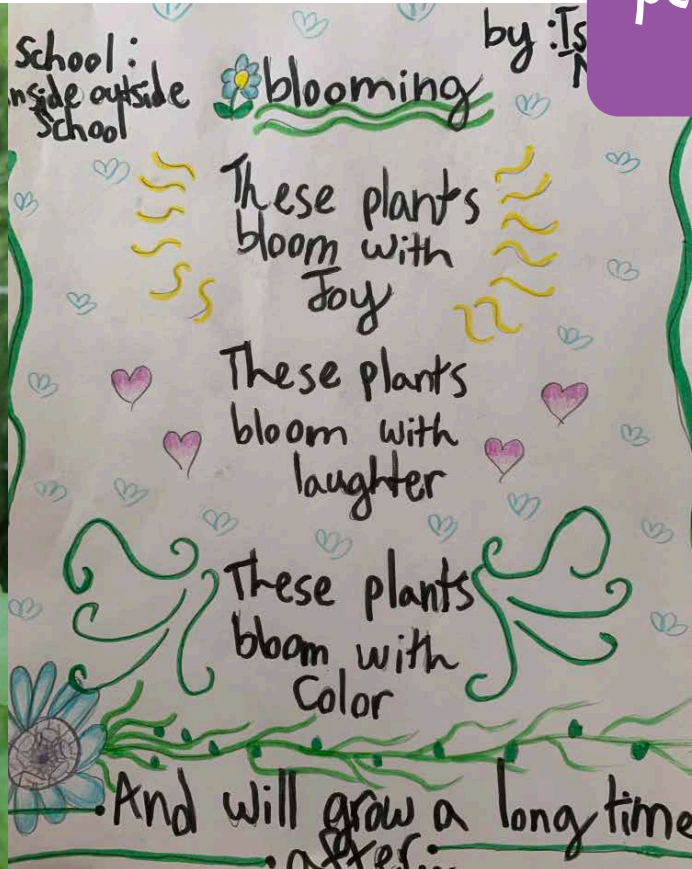 School:
inside outside
School
by:
blooming
These plants
bloom with
Joy
These plants
bloom with
laughter
These plants
bloom with
Color
And will grow a long time
after...